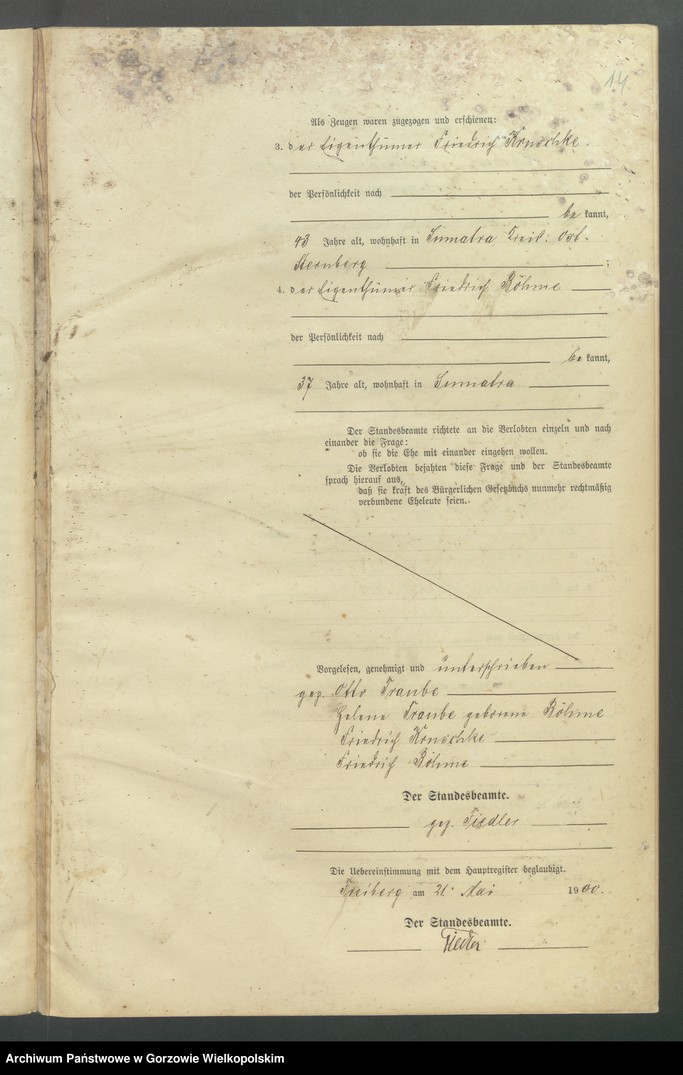 14.
Als Zeugen waren zugezogen und erschienen:
3. der Eigenthümer Friedrich Kruschke.
der Persönlichkeit nach
be kannt,
43 Jahre alt, wohnhaft in Sumatra Kreis: Ost-
Sternberg ;
4. der Eigenthümer Friedrich Böhme
der Persönlichkeit nach
be kannt,
37 Jahre alt, wohnhaft in Sumatra
Der Standesbeamte richtete an die Verlobten einzeln und nach
einander die Frage:
ob sie die Ehe mit einander eingehen wollen.
Die Verlobten bejahten diese Frage und der Standesbeamte
sprach hierauf aus,
daß sie kraft des Bürgerlichen Gesetzbuchs nunmehr rechtmäßig
verbundene Eheleute seien.
Vorgelesen, genehmigt und unterschrieben
gez. Otto Traube
Helene Traube geborene Böhme
Friedrich Kruschke
Friedrich Böhme
Der Standesbeamte.
gez. Fiedler
Die Uebereinstimmung mit dem Hauptregister beglaubigt.
Freiberg am 21. Mai 1900.
Der Standesbeamte.
Fiedler
Archiwum Państwowe w Gorzowie Wielkopolskim